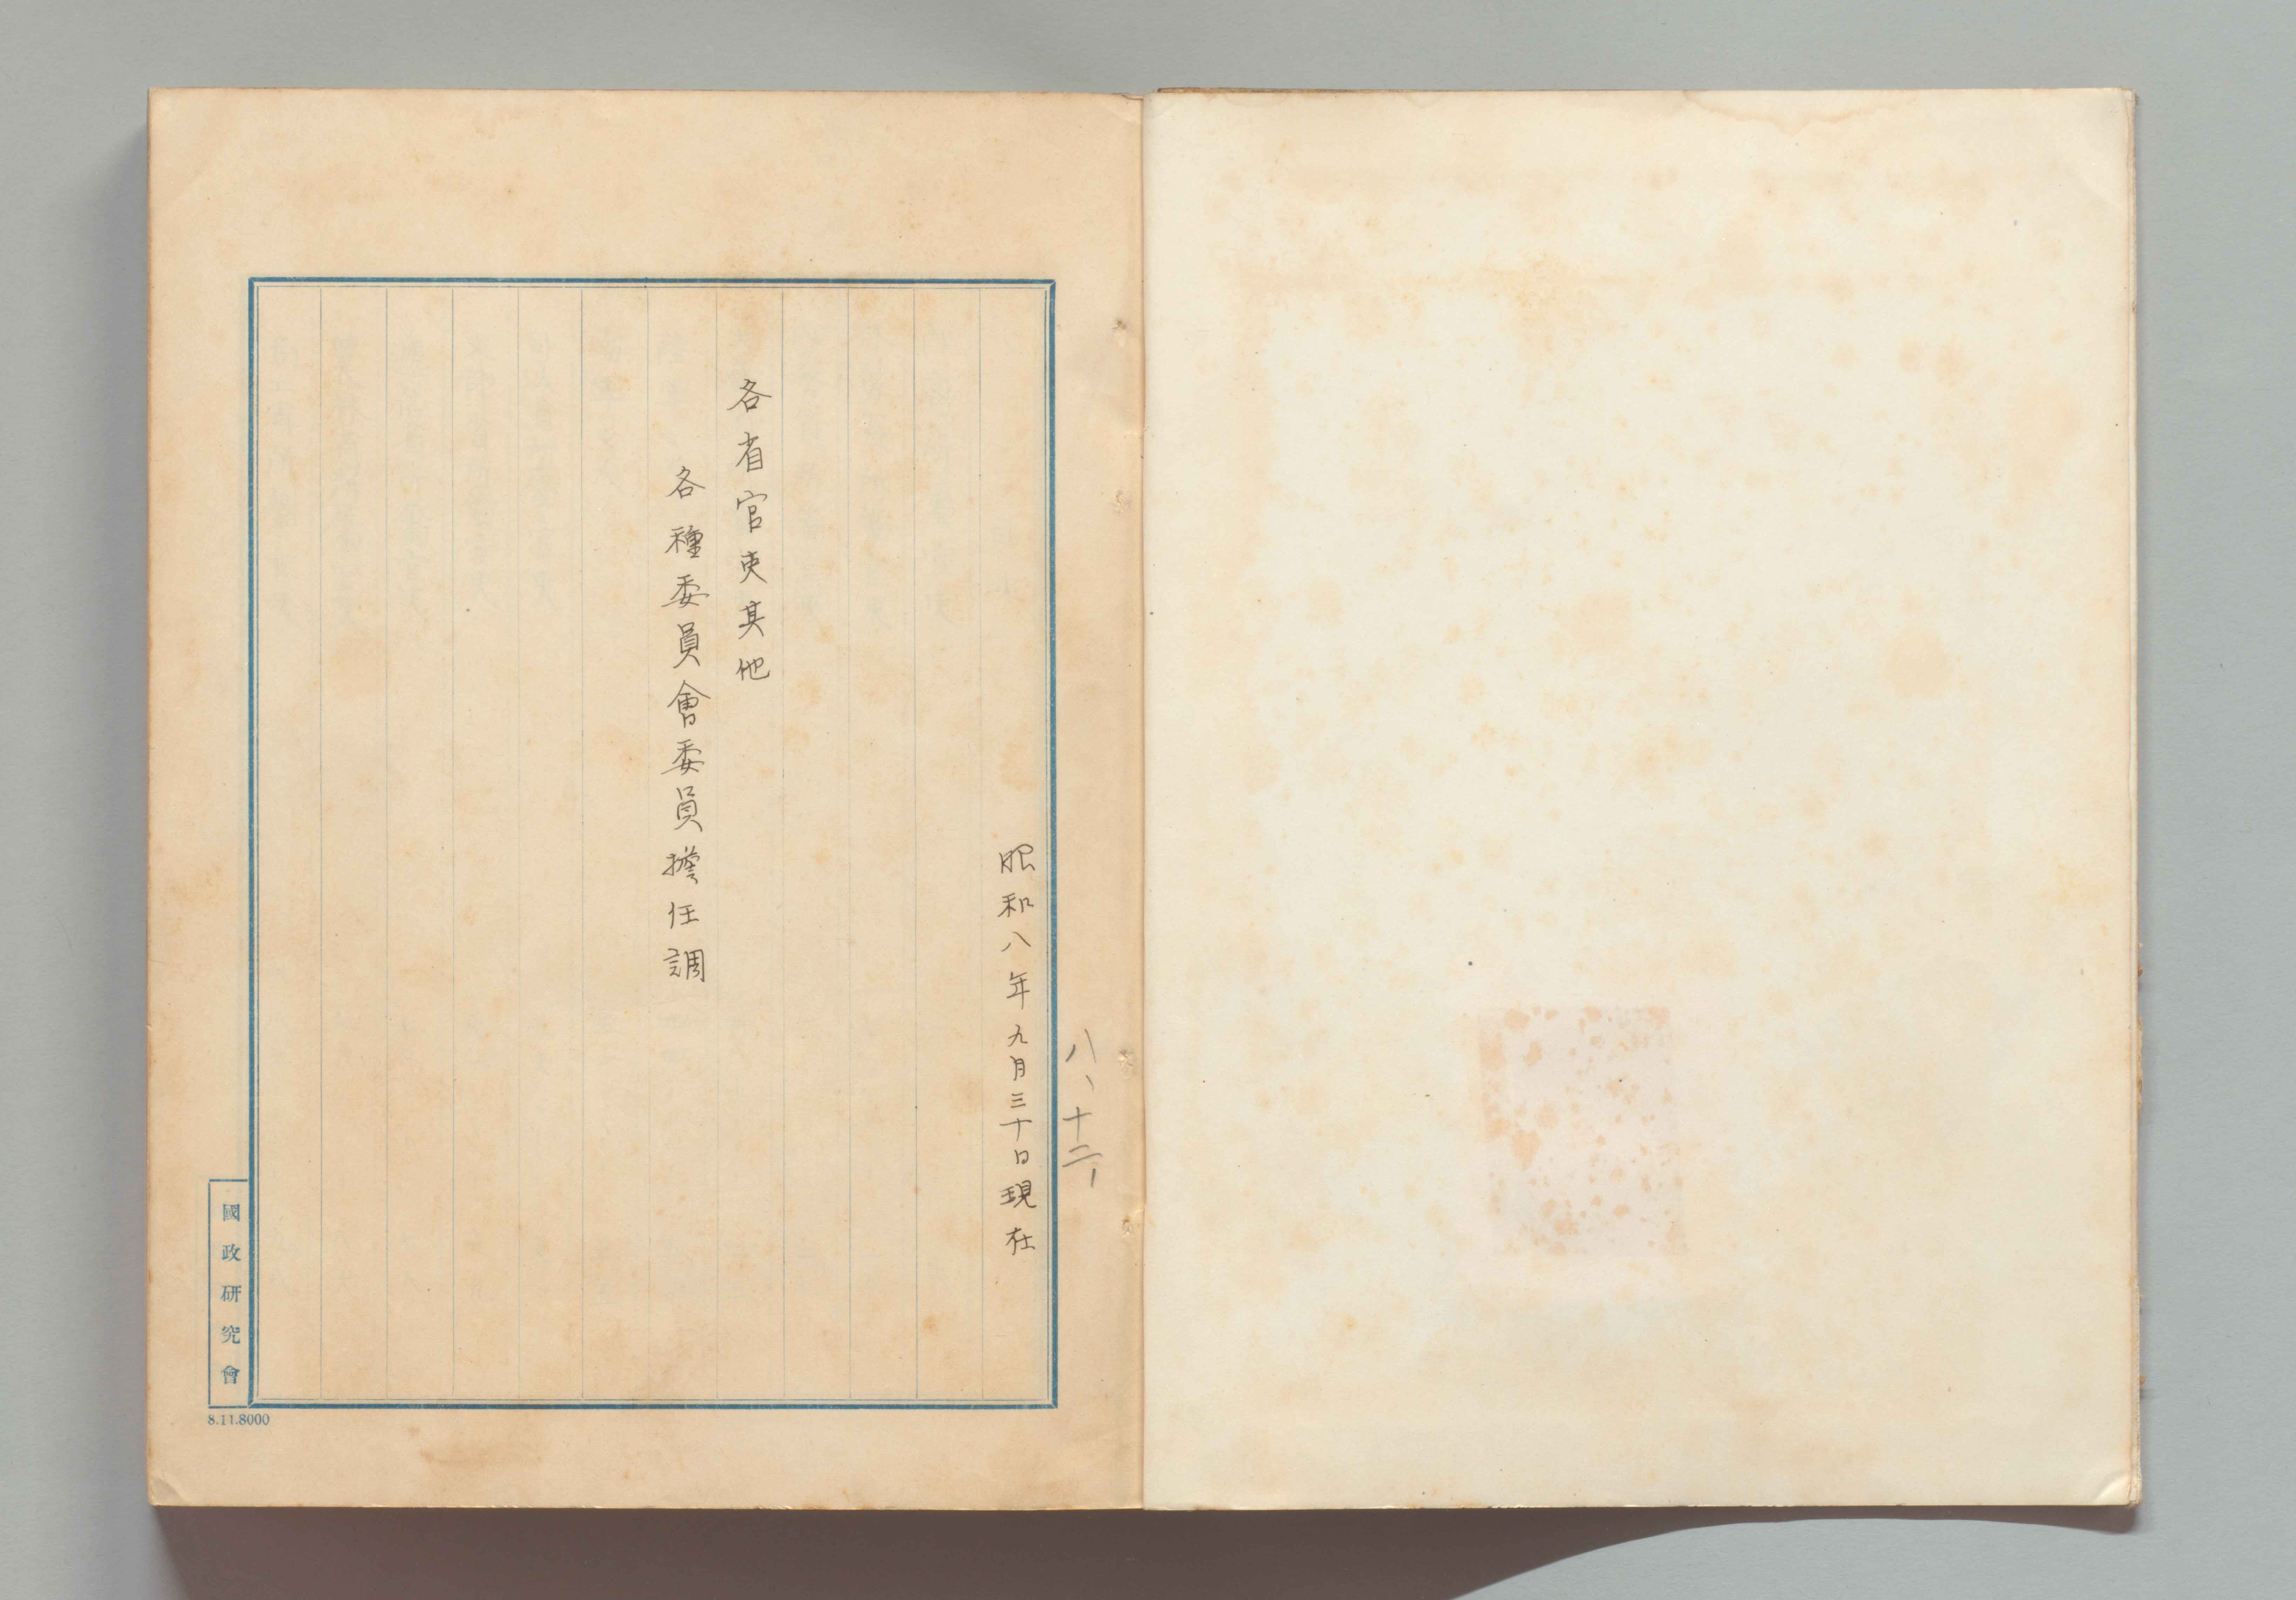 八、十二、
昭和八年九月三十日現在
各省官吏其他
各種委員會委員擔任調
國政研究會
8.11.8000